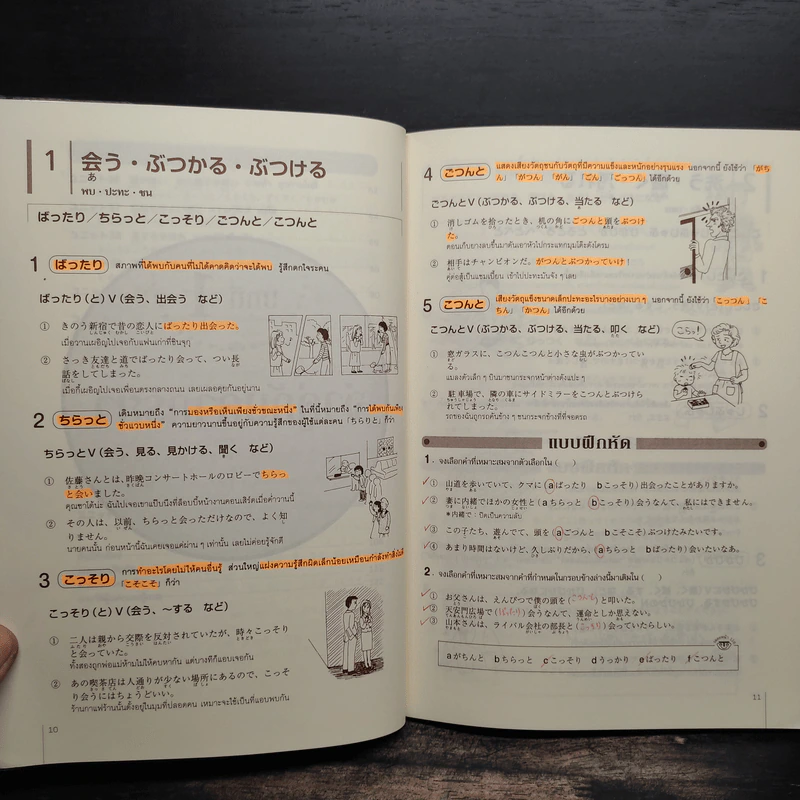 1 会う・ぶつかる・ぶつける
あ
พบ・ปะทะ・ชน
ばったり／ちらっと／こっそり／ごつんと／こつんと
1 ばったり สภาพที่ได้พบกับคนที่ไม่ได้คาดคิดว่าจะได้พบ รู้สึกตกใจระคน
ばったり(と)V(会う、出会う など)
① きのう新宿で昔の恋人にばったり出会った。
เมื่อวานเผอิญไปเจอกับแฟนเก่าที่ชินจุกุ
② さっき友達と道でばったり会って、つい長
話をしてしまった。
เมื่อกี้เผอิญไปเจอเพื่อนตรงกลางถนน เลยเผลอคุยกันอยู่นาน
2 ちらっと เดิมหมายถึง "การมองหรือเห็นเพียงชั่วขณะหนึ่ง" ในที่นี้หมายถึง "การได้พบกันเพียง
ชั่วแวบหนึ่ง" ความยาวนานขึ้นอยู่กับความรู้สึกของผู้ใช้แต่ละคน「ちらりと」ก็ว่า
ちらっとV(会う、見る、見かける、聞く など)
① 佐藤さんとは、昨晩コンサートホールのロビーでちらっ
と会いました。
คุณซาโต้น่ะ ฉันไปเจอเขาแป๊บนึงที่ล็อบบี้หน้างานคอนเสิร์ตเมื่อค่ำวานนี้
② その人は、以前、ちらっと会っただけなので、よく知
りません。
นายคนนั้น ก่อนหน้านี้ฉันเคยเจอแค่ผ่าน ๆ เท่านั้น เลยไม่ค่อยรู้จักดี
3 こっそり การทำอะไรโดยไม่ให้คนอื่นรู้ ส่วนใหญ่แฝงความรู้สึกผิดเล็กน้อยเหมือนกำลังทำสิ่งไม่ดี
「こそこそ」ก็ว่า
こっそり(と)V(会う、〜する など)
① 二人は親から交際を反対されていたが、時々こっそり
と会っていた。
ทั้งสองถูกพ่อแม่ห้ามไม่ให้คบหากัน แต่บางทีก็แอบเจอกัน
② あの喫茶店は人通りが少ない場所にあるので、こっそ
り会うにはちょうどいい。
ร้านกาแฟร้านนั้นตั้งอยู่ในมุมที่ปลอดคน เหมาะจะใช้เป็นที่แอบพบกัน
10
4 ごつんと แสดงเสียงวัตถุชนกับวัตถุที่มีความแข็งและหนักอย่างรุนแรง นอกจากนี้ ยังใช้ว่า「がち
ん」「がつん」「がん」「ごん」「ごっつん」ได้อีกด้วย
ごつんとV(ぶつかる、ぶつける、当たる など)
① 消しゴムを拾ったとき、机の角にごつんと頭をぶつけ
た。
ตอนเก็บยางลบขึ้นมาดันเอาหัวไปกระแทกมุมโต๊ะดังโครม
② 相手はチャンピオンだ。がつんとぶつかっていけ！
คู่ต่อสู้เป็นแชมเปี้ยน เข้าไปปะทะมันจัง ๆ เลย
5 こつんと เสียงวัตถุแข็งขนาดเล็กปะทะอะไรบางอย่างเบาๆ นอกจากนี้ ยังใช้ว่า「こっつん」「こ
ちん」「かつん」ได้อีกด้วย
こつんとV(ぶつかる、ぶつける、当たる、叩く など)
こらっ！
① 窓ガラスに、こつんこつんと小さな虫がぶつかってい
る。
แมลงตัวเล็ก ๆ บินมาชนกระจกหน้าต่างดังแปะ ๆ
② 駐車場で、隣の車にサイドミラーをこつんとぶつけら
れてしまった。
รถของฉันถูกรถคันข้าง ๆ ชนกระจกข้างที่ที่จอดรถ
แบบฝึกหัด
1. จงเลือกคำที่เหมาะสมจากตัวเลือกใน ( )
① 山道を歩いていて、クマに(aばったり bこっそり)出会ったことがありますか。
② 妻に内緒でほかの女性と(aちらっと bこっそり)会うなんて、私にはできません。
*内緒で：ปิดเป็นความลับ
③ この子たち、遊んでて、頭を(aごつんと bこそこそ)ぶつけたみたいです。
④ あまり時間はないけど、久しぶりだから、(aちらっと bばったり)会いたいなあ。
2. จงเลือกคำที่เหมาะสมจากคำที่กำหนดในกรอบข้างล่างนี้มาเติมใน ( )
① お父さんは、えんぴつで僕の頭を(こつんと)と叩いた。
② 天安門広場で(ばったり)会うなんて、運命としか思えない。
③ 山本さんは、ライバル会社の部長と(こっそり)会っていたらしい。
aがちんと bちらっと cこっそり dうっかり eばったり fこつんと
11